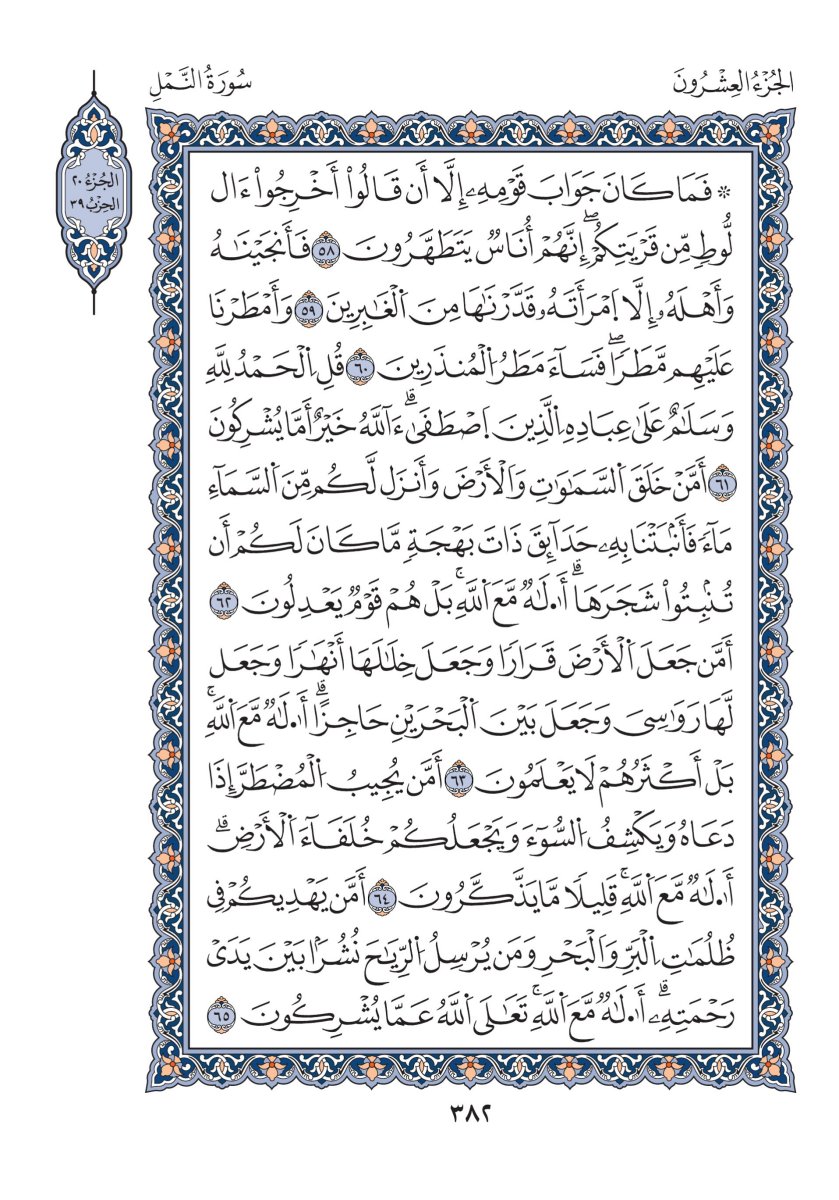 الجُزْءُ العِشْرُونَ
سُورَةُ النَّمْلِ
الجُزْءُ ٢٠
الحِزْبُ ٣٩
۞ فَمَا كَانَ جَوَابَ قَوْمِهِۦٓ إِلَّآ أَن قَالُوٓاْ أَخْرِجُوٓاْ ءَالَ
لُوطٍ مِّن قَرْيَتِكُمُۥٓۖ إِنَّهُمْ أُنَاسٌ يَتَطَهَّرُونَ ٥٨ فَأَنجَيْنَٰهُ
وَأَهْلَهُۥٓ إِلَّا اَ۪مْرَأَتَهُۥ قَدَّرْنَٰهَا مِنَ اَ۬لْغَٰبِرِينَ ٥٩ وَأَمْطَرْنَا
عَلَيْهِم مَّطَرٗاۖ فَسَآءَ مَطَرُ اُ۬لْمُنذَرِينَ ٦٠ قُلِ اِ۬لْحَمْدُ لِلَّهِ
وَسَلَٰمٌ عَلَىٰ عِبَادِهِ اِ۬لَّذِينَ اَ۪صْطَفَىٰٓۗ ءَآللَّهُ خَيْرٌ أَمَّا يُشْرِكُونَ
٦١ أَمَّنْ خَلَقَ اَ۬لسَّمَٰوَٰتِ وَاَلْأَرْضَ وَأَنزَلَ لَكُم مِّنَ اَ۬لسَّمَآءِ
مَآءٗ فَأَنۢبَتْنَا بِهِۦ حَدَآئِقَ ذَاتَ بَهْجَةٖ مَّا كَانَ لَكُمْ أَن
تُنۢبِتُواْ شَجَرَهَآۗ أَ۟لَٰهٌ مَّعَ اَ۬للَّهِۚ بَلْ هُمْ قَوْمٌ يَعْدِلُونَ ٦٢
أَمَّن جَعَلَ اَ۬لْأَرْضَ قَرَارٗا وَجَعَلَ خِلَٰلَهَآ أَنْهَٰرٗا وَجَعَلَ
لَهَا رَوَٰسِيَ وَجَعَلَ بَيْنَ اَ۬لْبَحْرَيْنِ حَاجِزًاۗ أَ۟لَٰهٌ مَّعَ اَ۬للَّهِۚ
بَلْ أَكْثَرُهُمْ لَا يَعْلَمُونَ ٦٣ أَمَّن يُجِيبُ اُ۬لْمُضْطَرَّ إِذَا
دَعَاهُ وَيَكْشِفُ اُ۬لسُّوٓءَ وَيَجْعَلُكُمْ خُلَفَآءَ اَ۬لْأَرْضِۗ
أَ۟لَٰهٌ مَّعَ اَ۬للَّهِۚ قَلِيلٗا مَّا يَذَّكَّرُونَ ٦٤ أَمَّن يَهْدِيكُمْ فِي
ظُلُمَٰتِ اِ۬لْبَرِّ وَاَلْبَحْرِ وَمَن يُرْسِلُ اُ۬لرِّيَٰحَ نُشُرَۢا بَيْنَ يَدَيْ
رَحْمَتِهِۦٓۗ أَ۟لَٰهٌ مَّعَ اَ۬للَّهِۚ تَعَٰلَى اَ۬للَّهُ عَمَّا يُشْرِكُونَ ٦٥
٣٨٢